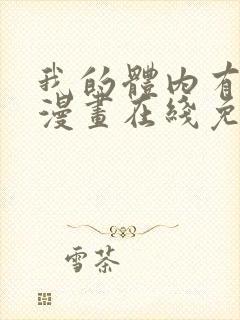 我的體內有
漫畫在綫免
雪茶